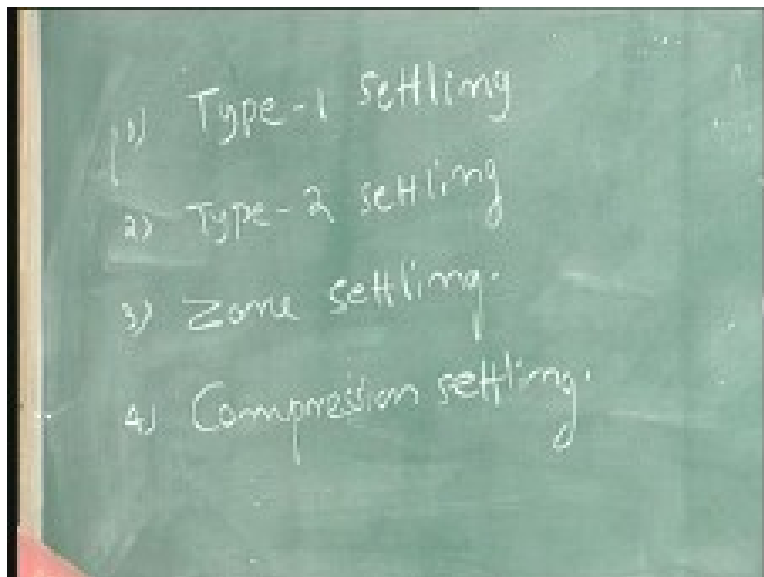 1) Type-1 settling
2) Type-2 settling
3) Zone settling.
4) Compression settling.